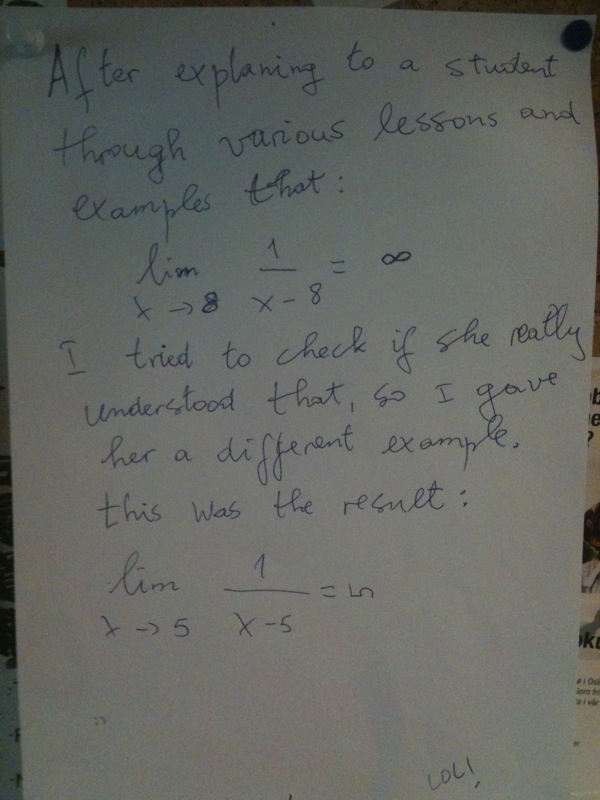 After explaning to a student
through various lessons and
examples that:
lim 1/(x-8) = ∞
x→8
I tried to check if she really
understood that, so I gave
her a different example.
this was the result:
lim 1/(x-5) = 5
x→5
LOL!